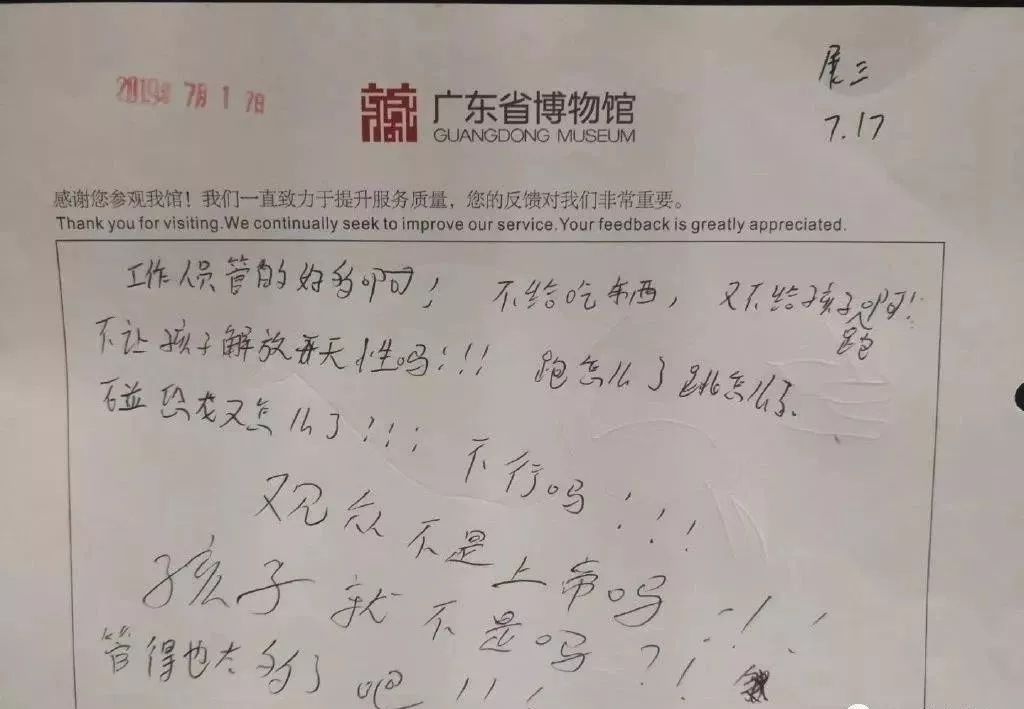 2019年 7月 1 7日
广东省博物馆
GUANGDONG MUSEUM
展三
7.17
感谢您参观我馆！我们一直致力于提升服务质量，您的反馈对我们非常重要。
Thank you for visiting.We continually seek to improve our service.Your feedback is greatly appreciated.
工作人员管的好多啊！ 不给吃东西， 又不给孩子跑啊！
不让孩子解放天性吗！！！ 跑怎么了 跳怎么了.
碰恐龙又怎么了！！！ 不行吗！！！
观众不是上帝吗！！！
孩子就不是吗？！
管得也太多了吧！！！